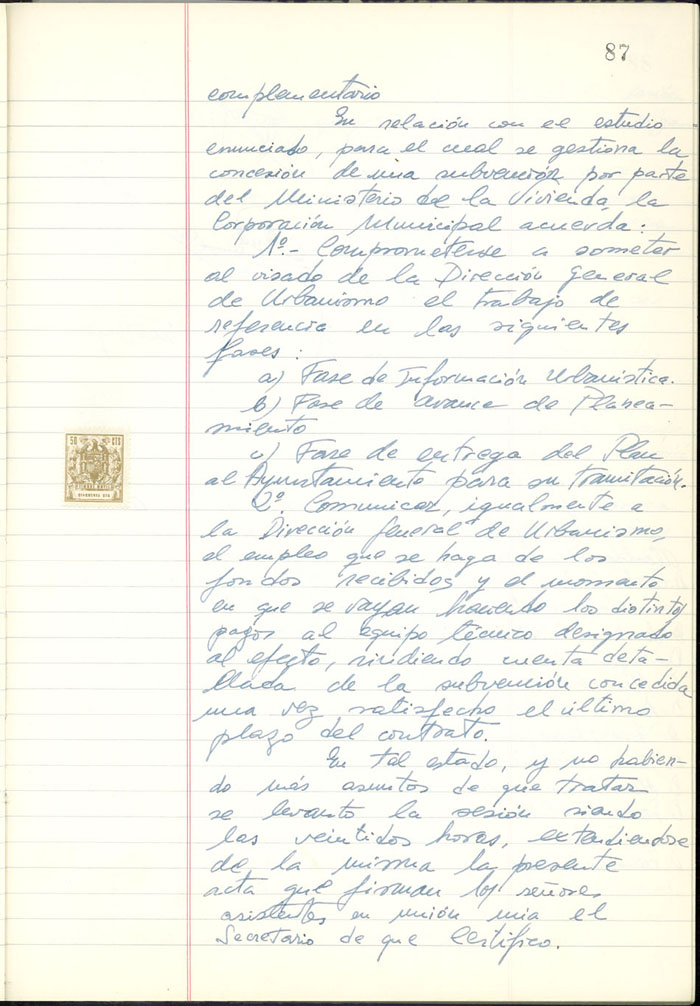 87
complementario
En relación con el estudio
enunciado, para el cual se gestiona la
concesión de una subvención por parte
del Ministerio de la Vivienda, la
Corporación Municipal acuerda:
1º.- Comprometerse a someter
al visado de la Dirección General
de Urbanismo el trabajo de
referencia en las siguientes
fases:
a) Fase de Información Urbanistica.
b) Fase de avance de Planea-
miento
c) Fase de entrega del Plan
al Ayuntamiento para su tramitación.
2º. Comunicar, igualmente a
la Dirección General de Urbanismo,
el empleo que se haga de los
fondos recibidos y el momento
en que se vayan haciendo los distintos
pagos al equipo técnico designado
al efecto, rindiendo cuenta deta-
llada de la subvención concedida
una vez satisfecho el último
plazo del contrato.
En tal estado, y no habien-
do más asuntos de que tratar
se levanto la sesión siendo
las veintidos horas, extendiendose
de la misma la presente
acta que firman los señores
asistentes en unión mia el
Secretario de que Certifico.
50 CTS